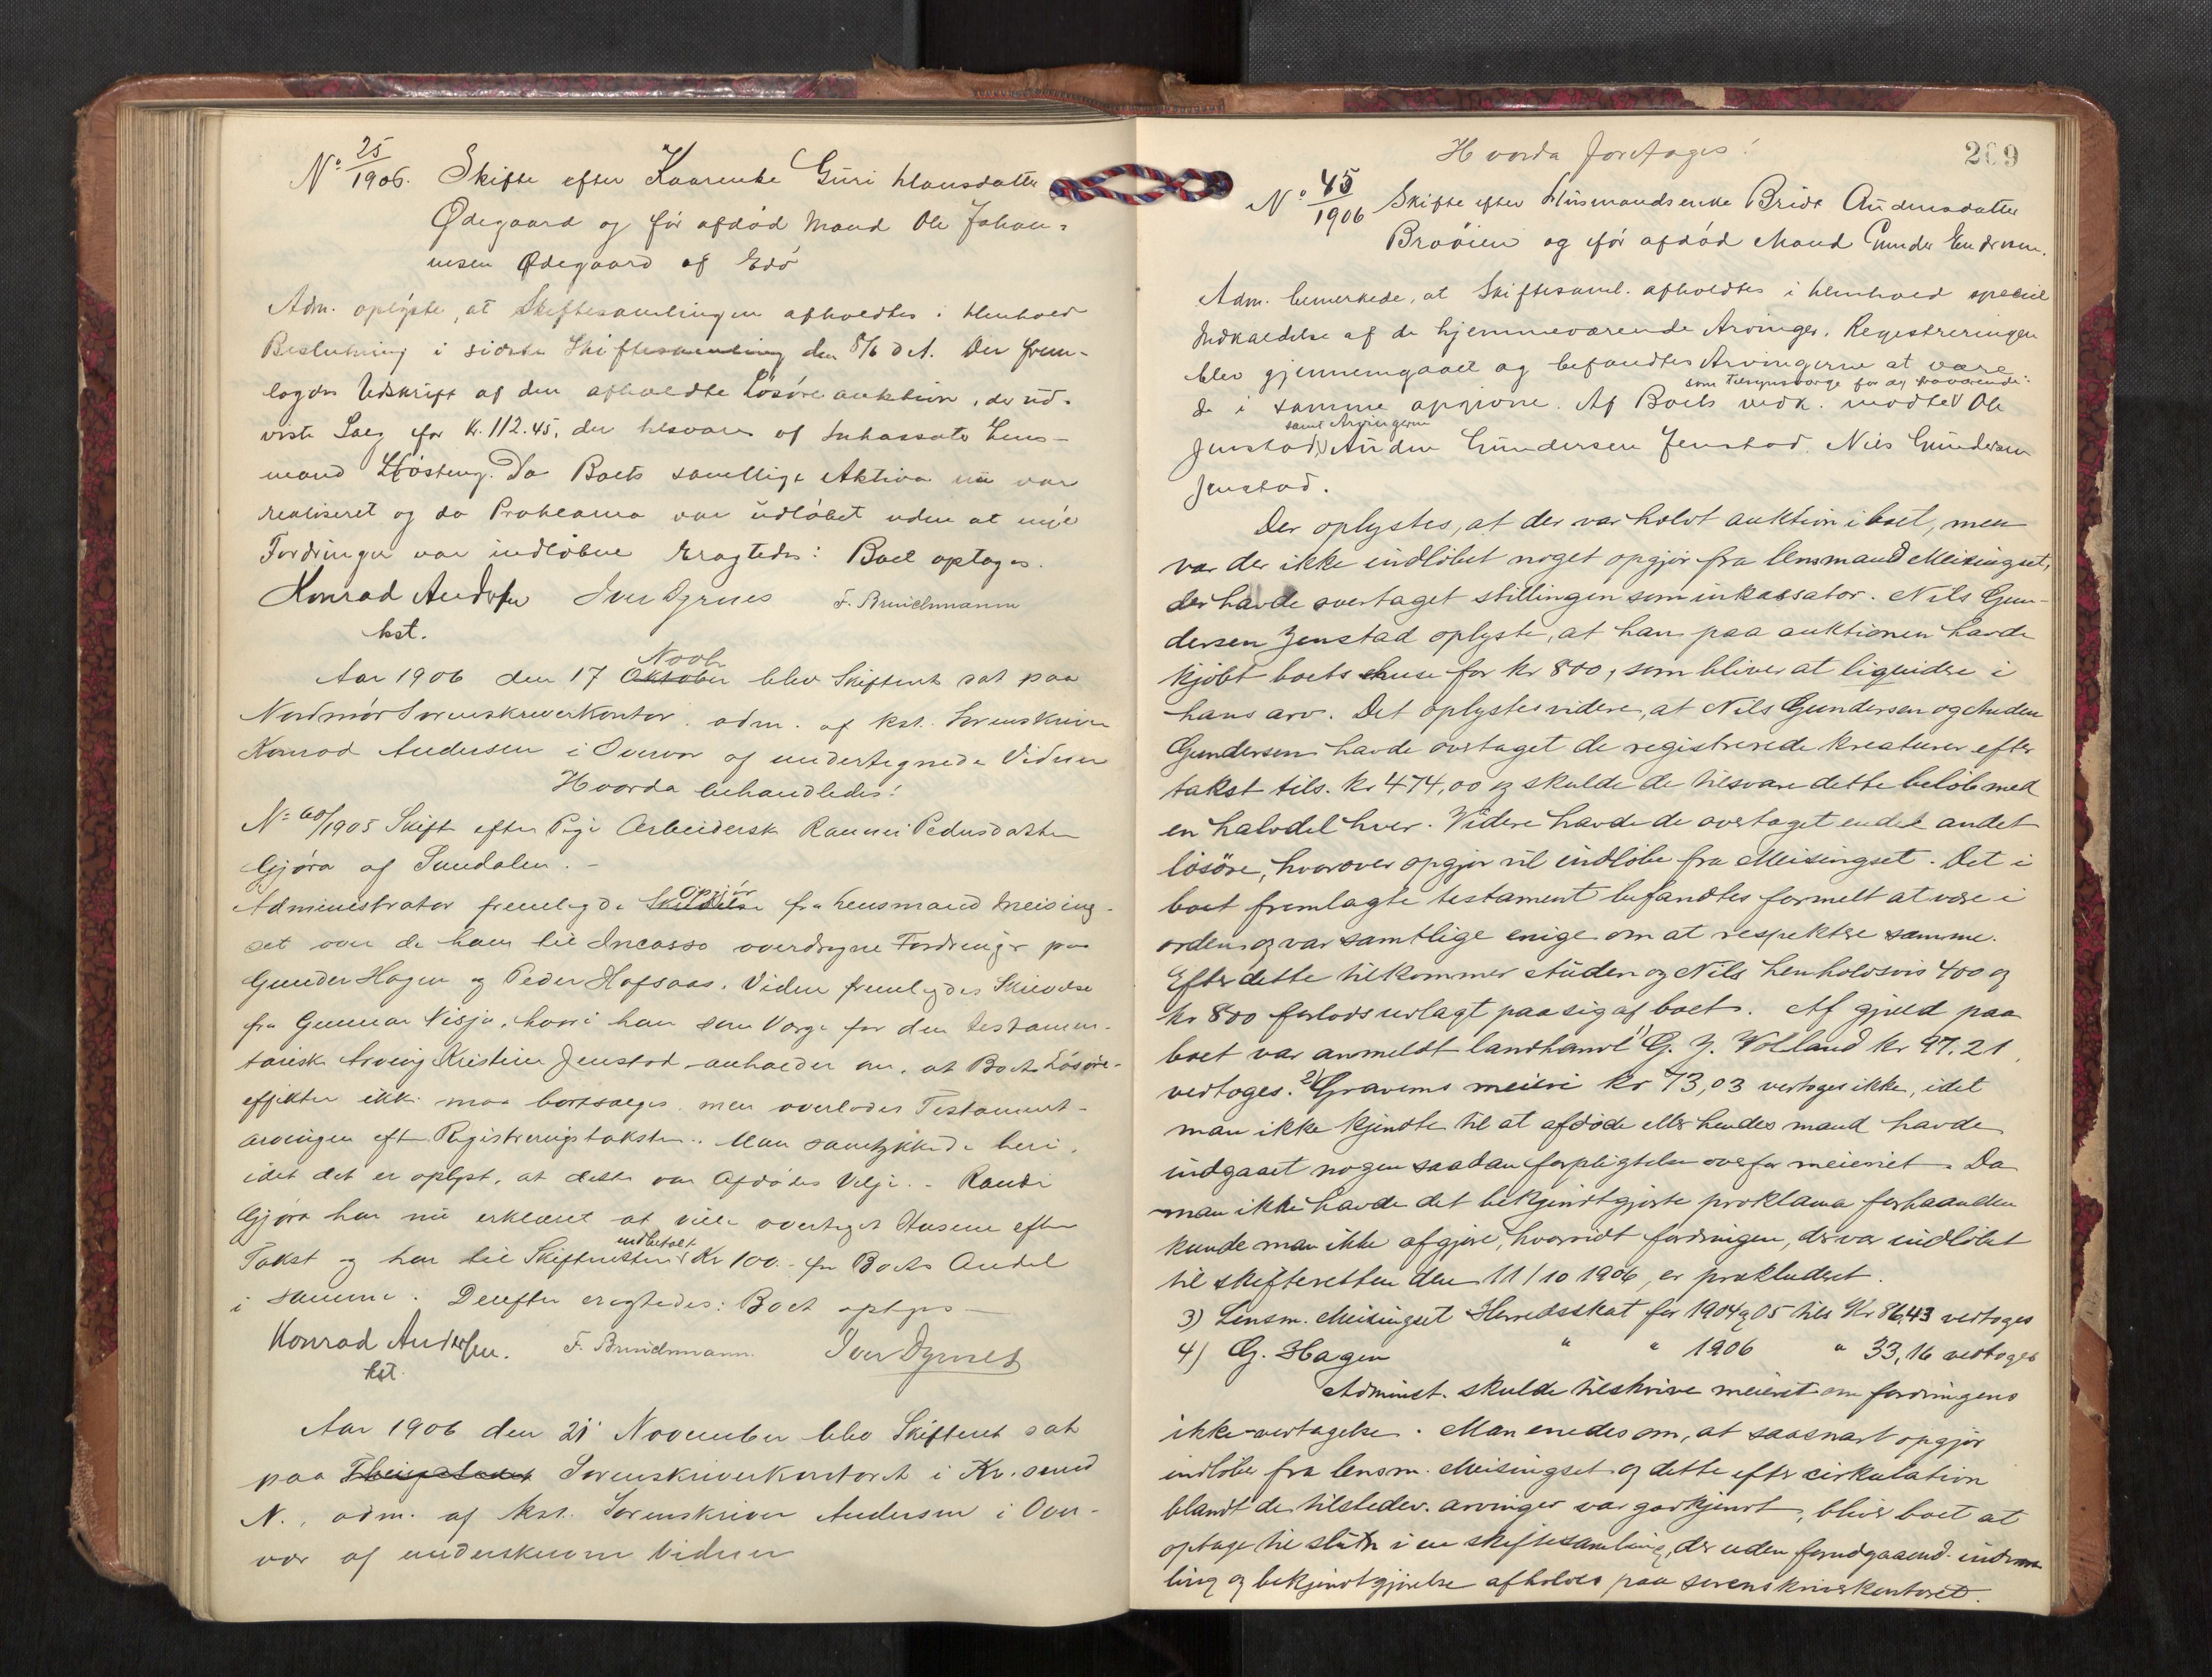 No 25/1906. Skifte efter Kaarenke Guri Hansdatter
Ødegaard og før afdød Mand Ole Johan-
nesen Ødegaard af Edø
Adm. oplyste, at Skiftesamlingen afholdtes i Henhold
Beslutning i sidste Skiftesamling den 8/6 d. A. Der frem-
lagdes Udskrift af den afholdte Løsøreauktion, der ud-
viste Salg for Kr. 112.45, der tilsvares af Inkassator Lens-
mand Høsteng. Da Boets samtlige Aktiva nu var
realiseret og da Proklama var udløbet uden at nye
Fordringer var indløbne eragtedes: Boet optages.
Konrad Andersen Iver Dyrnes F. Brinchmann
kst.
Aar 1906 den 17 Oktober Novbr blev Skifteret sat paa
Nordmør Sorenskriverkontor, adm. af kst. Sorenskriver
Konrad Andersen i Overvær af undertegnede Vidner
Hvorda behandledes:
No 60/1905 Skifte efter Pige Arbeiderske Rannei Pedersdatter
Gjøra af Sundalen. -
Administrator fremlagde Skrivelse Opgjør fra Lensmand Meising-
set over de ham til Incasso overdragne Fordringer paa
Gunder Hagen og Peder Hafsaas. Videre fremlagdes Skrivelse
fra Gunnar Visjø, hvori han som Værge for den testamen-
tariske Arving Kristine Jenstad anholder om, at Boets Løsøre-
effekter ikke maa bortsælges, men overlades Testament-
arvingen efter Registreringstaksten. Man samtykkede heri,
idet det er oplyst, at dette var Afdødes Vilje. - Randi
Gjøra har nu erklæret at ville overtaget Husene efter
Takst og har til Skifteretten indbetalt Kr 100.- for Boets Andel
i samme. Derefter eragtedes: Boet optages
Konrad Andersen. F. Brinchmann. Iver Dyrnes
kst.
Aar 1906 den 21 November blev Skifteret sat
paa Sorenskriverkontoret i Kr.sund
N., adm. af kst. Sorenskriver Andersen i Over-
vær af underskrevne Vidner
Hvorda foretages:
269
No 45/1906 Skifte efter Husmandsenke Brit Andersdatter
Brøøien og før afdød Mand Gunder Endresen.
Adm. bemerkede, at Skiftesaml. afholdtes i Henhold speciel
Indkaldelse af de hjemmeværende Arvinger. Registreringen
blev gjennemgaaet og befandtes Arvingerne at være
som Tilsynsværge for de fraværende:
de i samme opgivne. Af Boets vedk. mødte Ole
samt Arvingerne
Jenstad, Anders Gundersen Jenstad, Nils Gundersen
Jenstad.
Der oplystes, at der var holdt auktion i boet, men
var der ikke indløbet noget opgjør fra lensmand Meisingset,
der havde overtaget stillingen som inkassator. Nils Gun-
dersen Jenstad oplyste, at han paa auktionen havde
kjøbt boets huse for kr 800, som bliver at liquidere i
hans arv. Det oplystes videre, at Nils Gundersen og Anders
Gundersen havde overtaget de registrerede kreaturer efter
takst tils. kr 474,00 og skulde de tilsvare dette beløb med
en halvdel hver. Videre havde de overtaget endel andet
løsøre, hvorover opgjør vil indløbe fra Meisingset. Det i
boet fremlagte testament befandtes formelt at være i
orden og var samtlige enige om at respektere samme.
Efter dette tilkommer Anders og Nils henholdsvis 400 og
kr 800 forlods udlagt paa sig af boet. Af gjæld paa
boet var anmeldt 1) landhandl. G. J. Volland kr 97.21,
vedtoges. 2) Gravems meieri kr 73,03 vedtoges ikke, idet
man ikke kjendte til at afdøde eller hendes mand havde
indgaaet nogen saadan forpligtelse overfor meieriet. Da
man ikke havde det bekjendtgjorte proklama forhaanden
kunde man ikke afgjøre, hvorvidt fordringen, der var indløbet
til skifteretten den 11/10 1906, er prækluderet.
3) Lensm. Meisingset Herredsskat for 1904 og 05 tils Kr 86,43 vedtoges
4) G. Hagen " " 1906 " 33,16 vedtoges
Administ. skulde tilskrive meieriet om fordringens
ikke-vedtagelse. Man enedes om, at saasnart opgjør
indløber fra lensm. Meisingset og dette efter cirkulation
blandt de tilstedev. arvinger var godkjendt, bliver boet at
optage til slutn i en skiftesamling, der uden forudgaaend. indkal-
ling og bekjendtgjørelse afholdes paa sorenskriverkontoret.